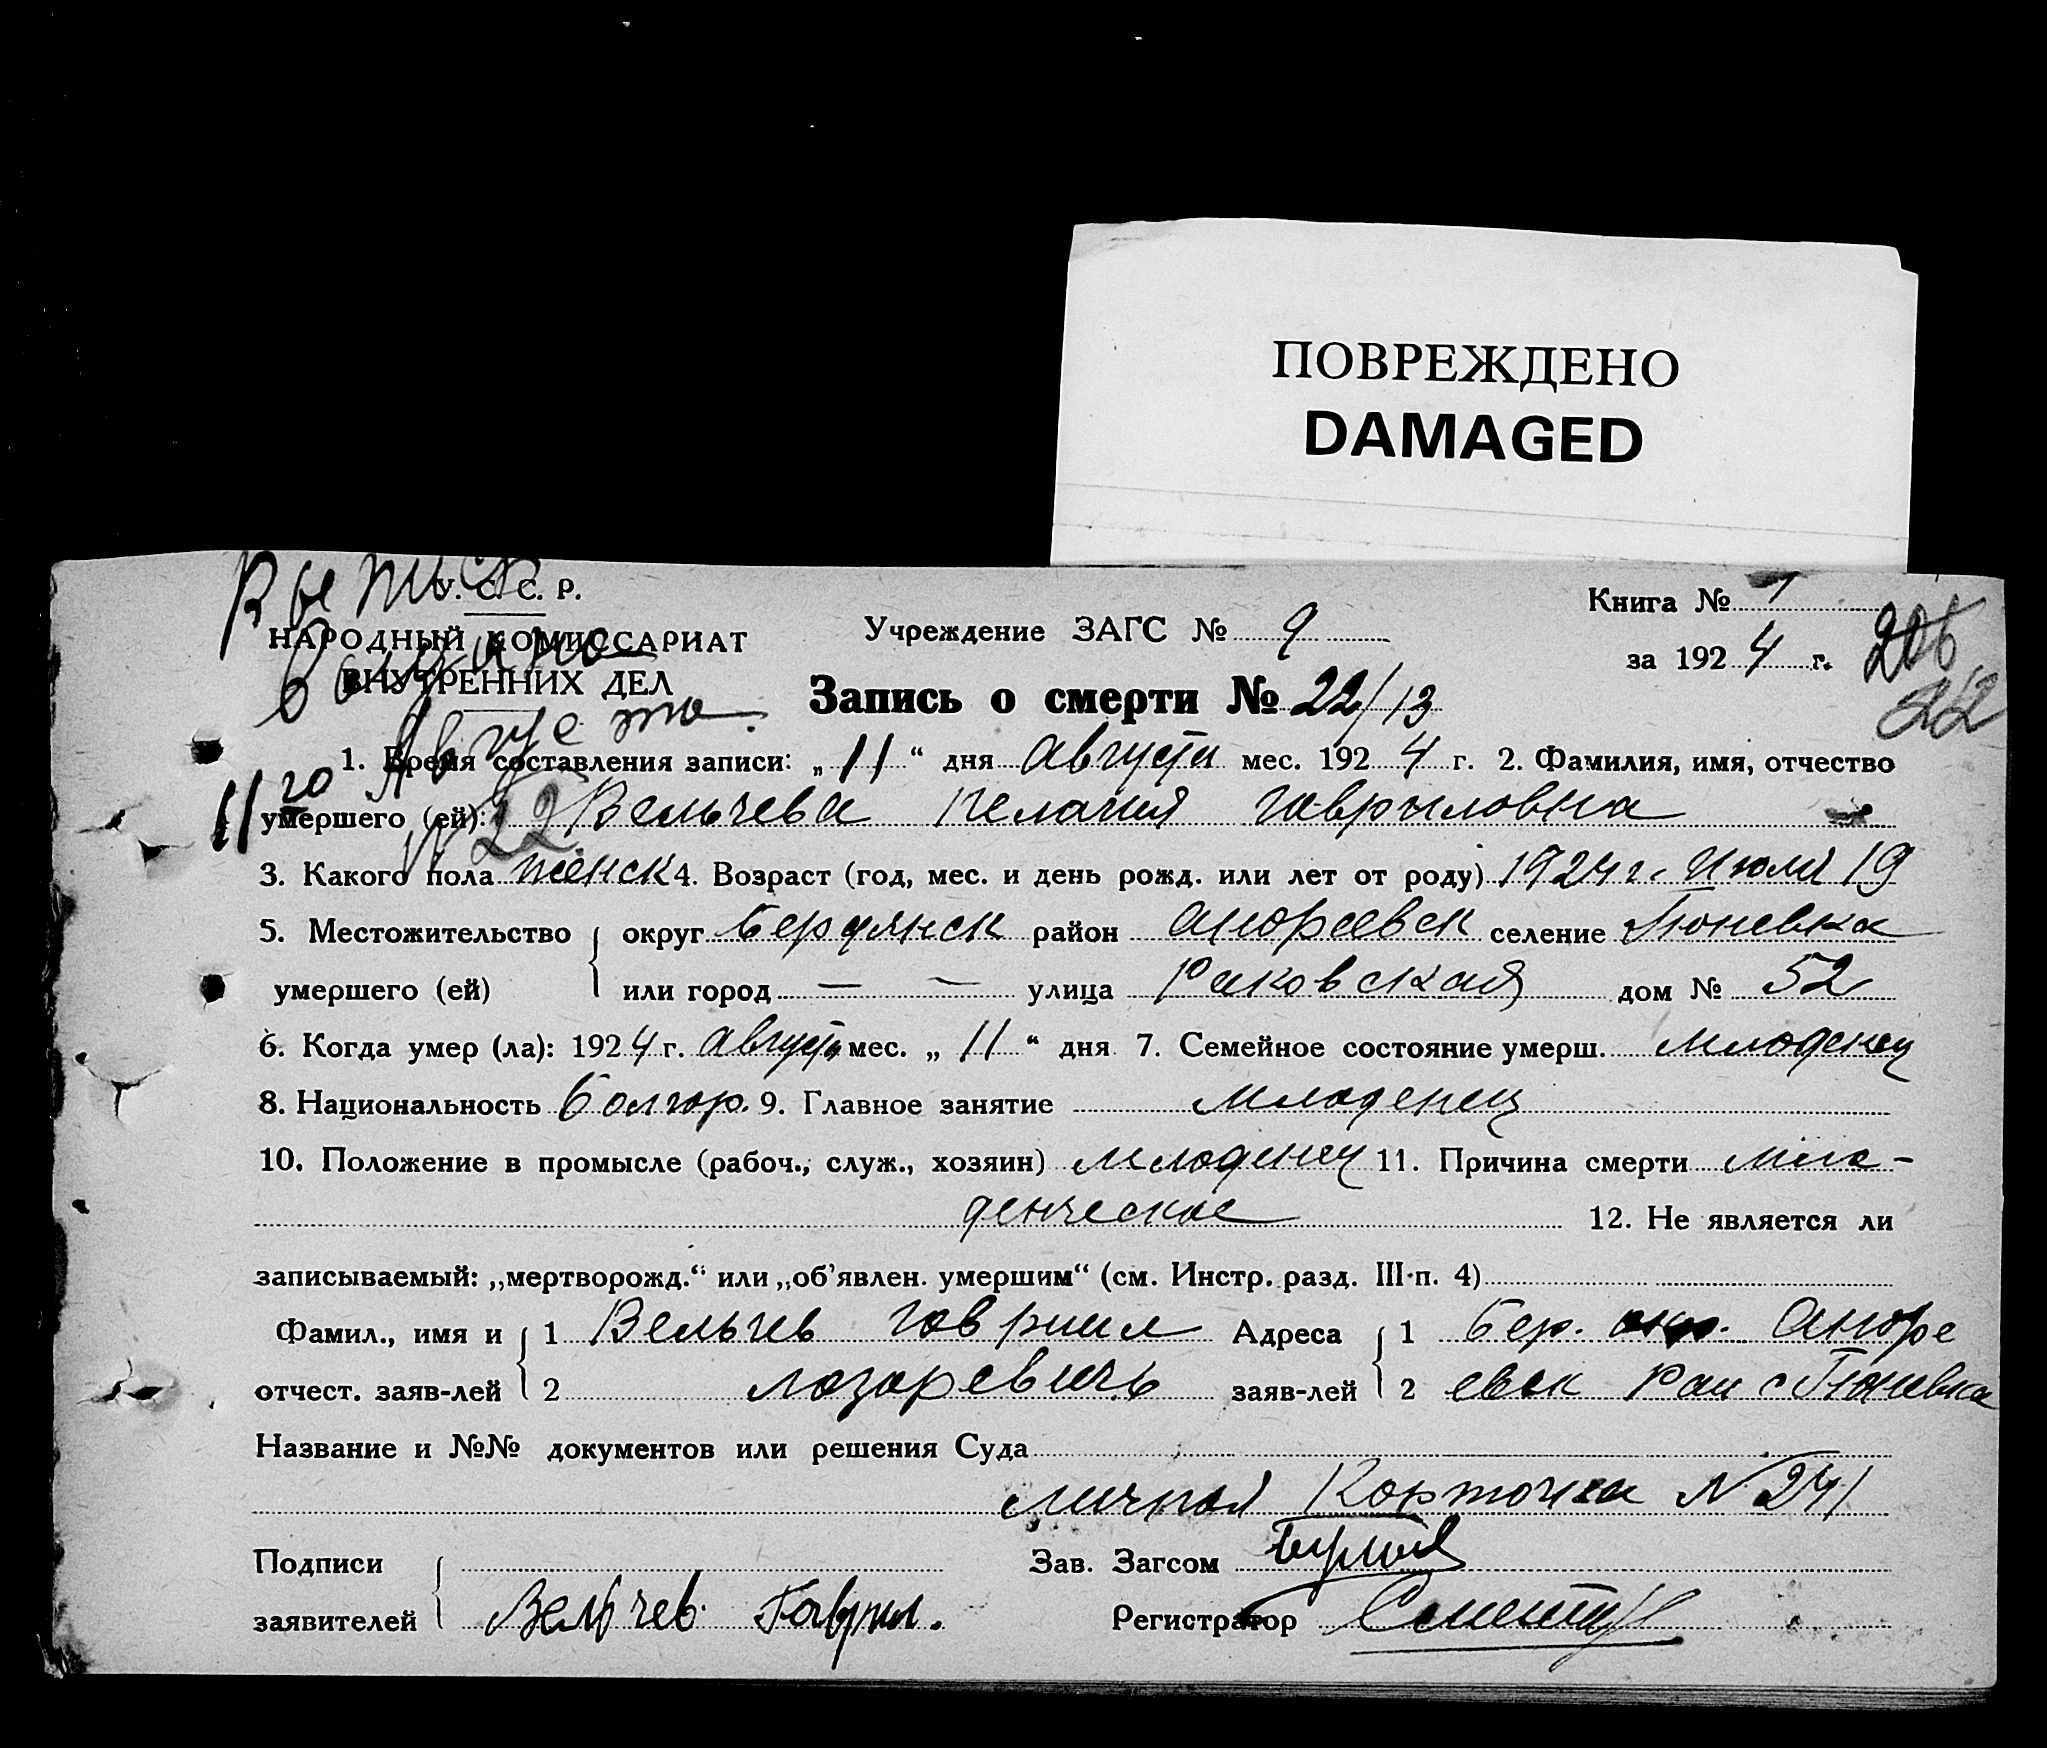 ПОВРЕЖДЕНО
DAMAGED
У. С. С. Р.
НАРОДНЫЙ КОМИССАРИАТ
ВНУТРЕННИХ ДЕЛ
выдано
Августа
11го
N 22
Учреждение ЗАГС № 9
Книга № 1
за 1924 г.
206
22
Запись о смерти № 22/13
1. Время составления записи: „11“ дня августа мес. 1924 г. 2. Фамилия, имя, отчество
умершего (ей): Вельчева Пелагия Гавриловна
3. Какого пола женск 4. Возраст (год, мес. и день рожд. или лет от роду) 1924 г. Июля 19
5. Местожительство округ Бердянск район Андреевск селение Тюневка
умершего (ей) или город — — улица Раковская дом № 52
6. Когда умер (ла): 1924 г. августа мес. „11“ дня 7. Семейное состояние умерш. младенец
8. Национальность болгар. 9. Главное занятие младенец
10. Положение в промысле (рабоч., служ., хозяин) младенец 11. Причина смерти мла-
денческое 12. Не является ли
записываемый: „мертворожд.“ или „об'явлен. умершим“ (см. Инстр. разд. III п. 4)
Фамил., имя и 1 Вельчев Гавриил Адреса 1 Бер. окр. Андре
отчест. заяв-лей 2 Лазаревичь заяв-лей 2 евск Рай с Тюневка
Название и №№ документов или решения Суда
личная Карточка N 241
Подписи Зав. Загсом
заявителей Вельчев Гаврил. Регистратор